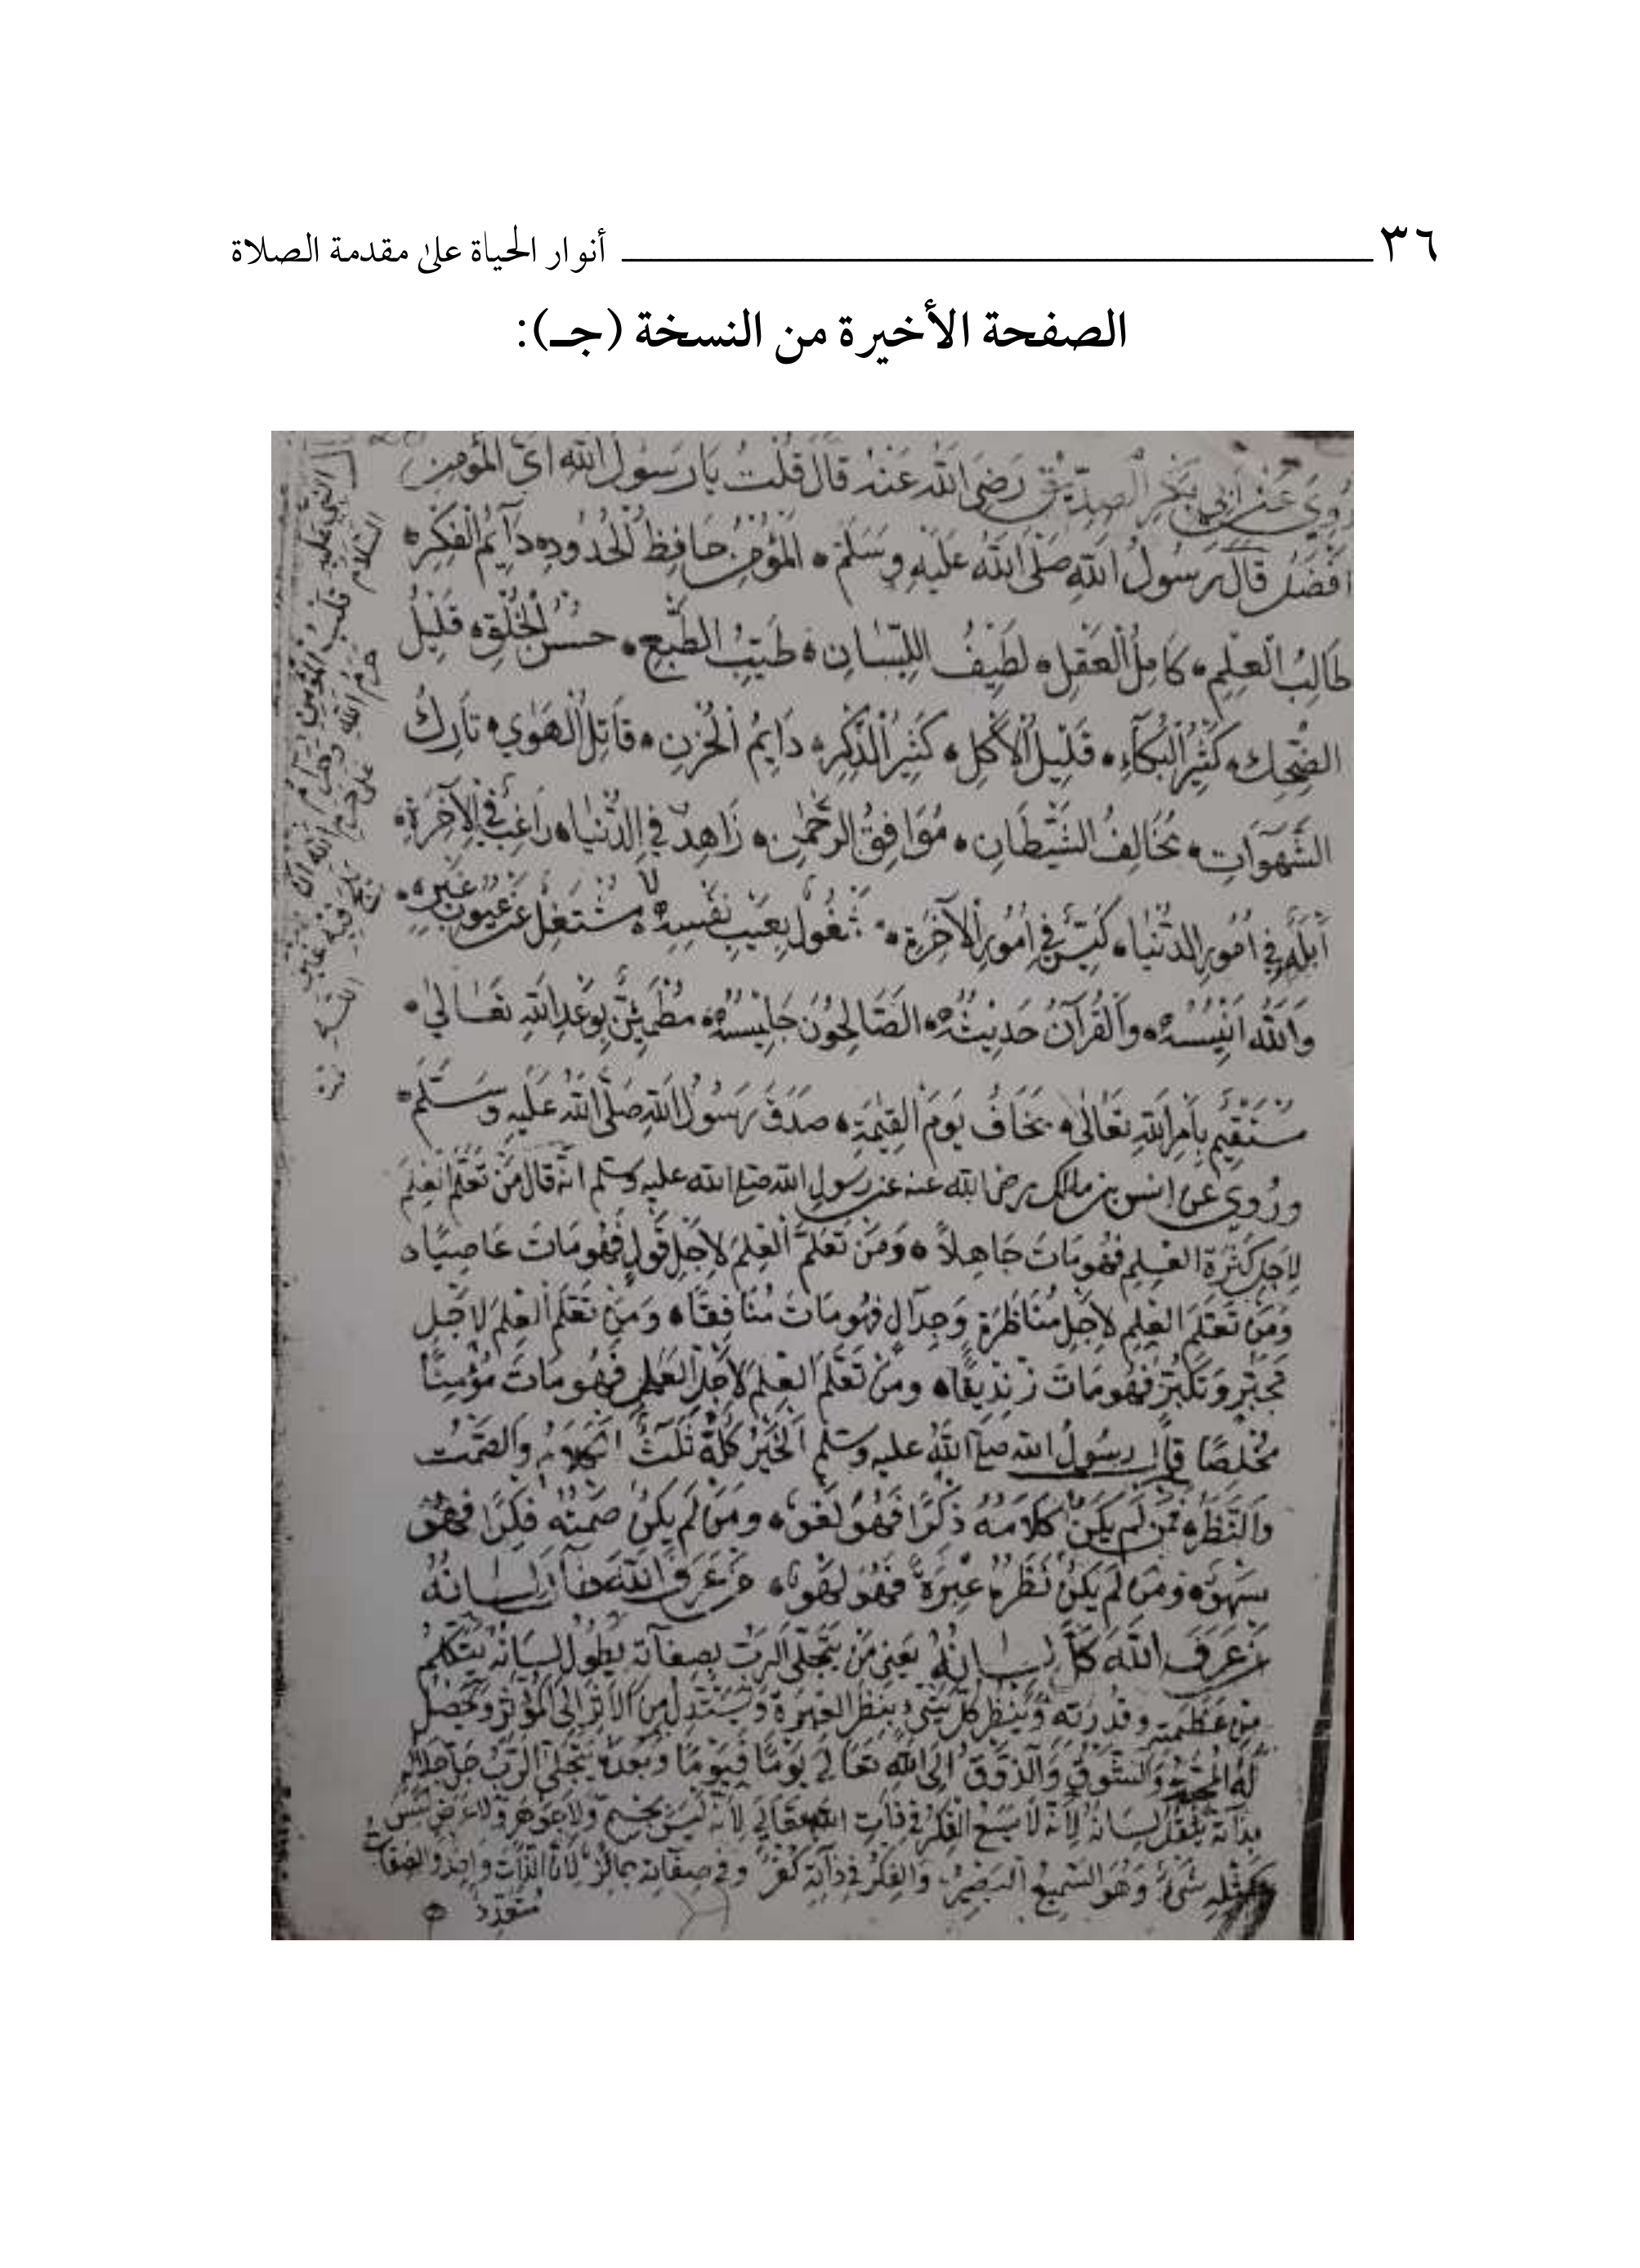 ٣٦ أنوار الحياة على مقدمة الصلاة
الصفحة الأخيرة من النسخة (جـ):
رُوِيَ عَنْ أَبِي بَكْرٍ الصِدِّيقِ رَضِيَ اللهُ عَنْهُ قَالَ قُلْتُ يَا رَسُولَ اللهِ أَيُّ الْمُؤْمِنِ
أَفْضَلُ قَالَ رَسُولُ اللهِ صَلَّى اللهُ عَلَيْهِ وَسَلَّمَ الْمُؤْمِنُ حَافِظُ الْحُدُودِ دَآئِمُ الْفِكْرِ
طَالِبُ الْعِلْمِ كَامِلُ الْعَقْلِ لَطِيفُ اللِّسَانِ طَيِّبُ الطَّبْعِ حُسْنُ الْخُلُقِ قَلِيلُ
الضِّحِكِ كَثِيرُ الْبُكَآءِ قَلِيلُ الْأَكْلِ كَثِيرُ الذِّكْرِ دَايِمُ الْحُزْنِ قَاتِلُ الْهَوٰي تَارِكُ
الشَّهَوَاتِ مُخَالِفُ الشَّيْطَانِ مُوَافِقُ الرَّحْمٰنِ زَاهِدٌ فِي الدُّنْيَا رَاغِبٌ فِي الْآخِرَةِ
أَبْلَهٌ فِي أُمُورِ الدُّنْيَا كَيِّسٌ فِي أُمُورِ الْآخِرَةِ بِعَيْبِ نَفْسِهِ لَا مُشْتَغِلٌ عَنْ عُيُوبِ غَيْرِهِ
وَاللهُ أَنِيسُهُ وَالْقُرْآنُ حَدِيثُهُ الصَّالِحُونَ جَلِيسُهُ مُطْمَئِنٌّ بِوَعْدِ اللهِ تَعَالٰي
مُسْتَقِيمٌ بِأَمْرِ اللهِ تَعَالٰي يَخَافُ يَوْمَ الْقِيٰمَةِ صَدَقَ رَسُولُ اللهِ صَلَّى اللهُ عَلَيْهِ وَسَلَّمَ
وَرُوِيَ عن انس بن مالك رضي الله عنه عن رسول الله صلي الله عليه وسلم انه قال مَنْ تَعَلَّمَ الْعِلْمَ
لِأَجْلِ كَثْرَةِ الْعِلْمِ فَهُوَ مَاتَ جَاهِلًا وَمَنْ تَعَلَّمَ الْعِلْمَ لِأَجْلِ قَوْلٍ فَهُوَ مَاتَ عَاصِيًا
وَمَنْ تَعَلَّمَ الْعِلْمَ لِأَجْلِ مُنَاظَرَةٍ وَجِدَالٍ فَهُوَ مَاتَ مُنَافِقًا وَمَنْ تَعَلَّمَ الْعِلْمَ لِأَجْلِ
تَجَبُّرٍ وَتَكَبُّرٍ فَهُوَ مَاتَ زِنْدِيقًا وَمَنْ تَعَلَّمَ الْعِلْمَ لِأَجْلِ الْعَمَلِ فَهُوَ مَاتَ مُؤْمِنًا
مُخْلِصًا قال رسولُ الله صلي اللهُ عليه وسلم الْخَيْرُ كُلُّهُ ثَلَثٌ الْكَلَامُ وَالصَّمْتُ
وَالنَّظَرُ فَمَنْ لَمْ يَكُنْ كَلَامُهُ ذِكْرًا فَهُوَ لَغْوٌ وَمَنْ لَمْ يَكُنْ صَمْتُهُ فِكْرًا فَهُوَ
سَهْوٌ وَمَنْ لَمْ يَكُنْ نَظَرُهُ عِبْرَةً فَهُوَ لَهْوٌ مَنْ عَرَفَ اللهَ طَالَ لِسَانُهُ
مَنْ عَرَفَ اللهَ كَلَّ لِسَانُهُ يَعْنِي مَنْ يَتَجَلَّى الرَّبُّ بِصِفَاتِهِ يَطُولُ لِسَانُهُ يَتَكَلَّمُ
مِنْ عَظَمَتِهِ وَقُدْرَتِهِ وَيَنْظُرُ كُلَّ شَيْءٍ بِنَظَرِ الْعِبْرَةِ وَيَسْتَدِلُّ مِنَ الْأَثَرِ إِلَى الْمُؤَثِّرِ وَيَحْصُلُ
لَهُ الْمَحَبَّةُ وَالشَّوْقُ وَالذَّوْقُ إِلَى اللهِ تَعَالَى يَوْمًا فَيَوْمًا وَبَعْدَهُ يَتَجَلَّى الرَّبُّ جَلَّ جَلَالُهُ
بِذَاتِهِ لِسَانُهُ لِأَنَّهُ لَا يَسَعُ الْفِكْرُ فِي ذَاتِ اللهِ تَعَالَي لِأَنَّهُ لَيْسَ بِجِسْمٍ وَلَا جَوْهَرٍ وَلَا عَرَضٍ لَيْسَ
كَمِثْلِهِ شَيْءٌ وَهُوَ السَّمِيعُ الْبَصِيرُ وَالْفِكْرُ فِي ذَاتِهِ كُفْرٌ وَفِي صِفَاتِهِ جَائِزٌ لِأَنَّ الذَّاتَ وَاحِدٌ وَالصِّفَاتُ
مُتَعَدِّدٌ
النبي عليه السلام قلب المؤمن حرم الله وحرام على حرم الله ان فيه غير الله